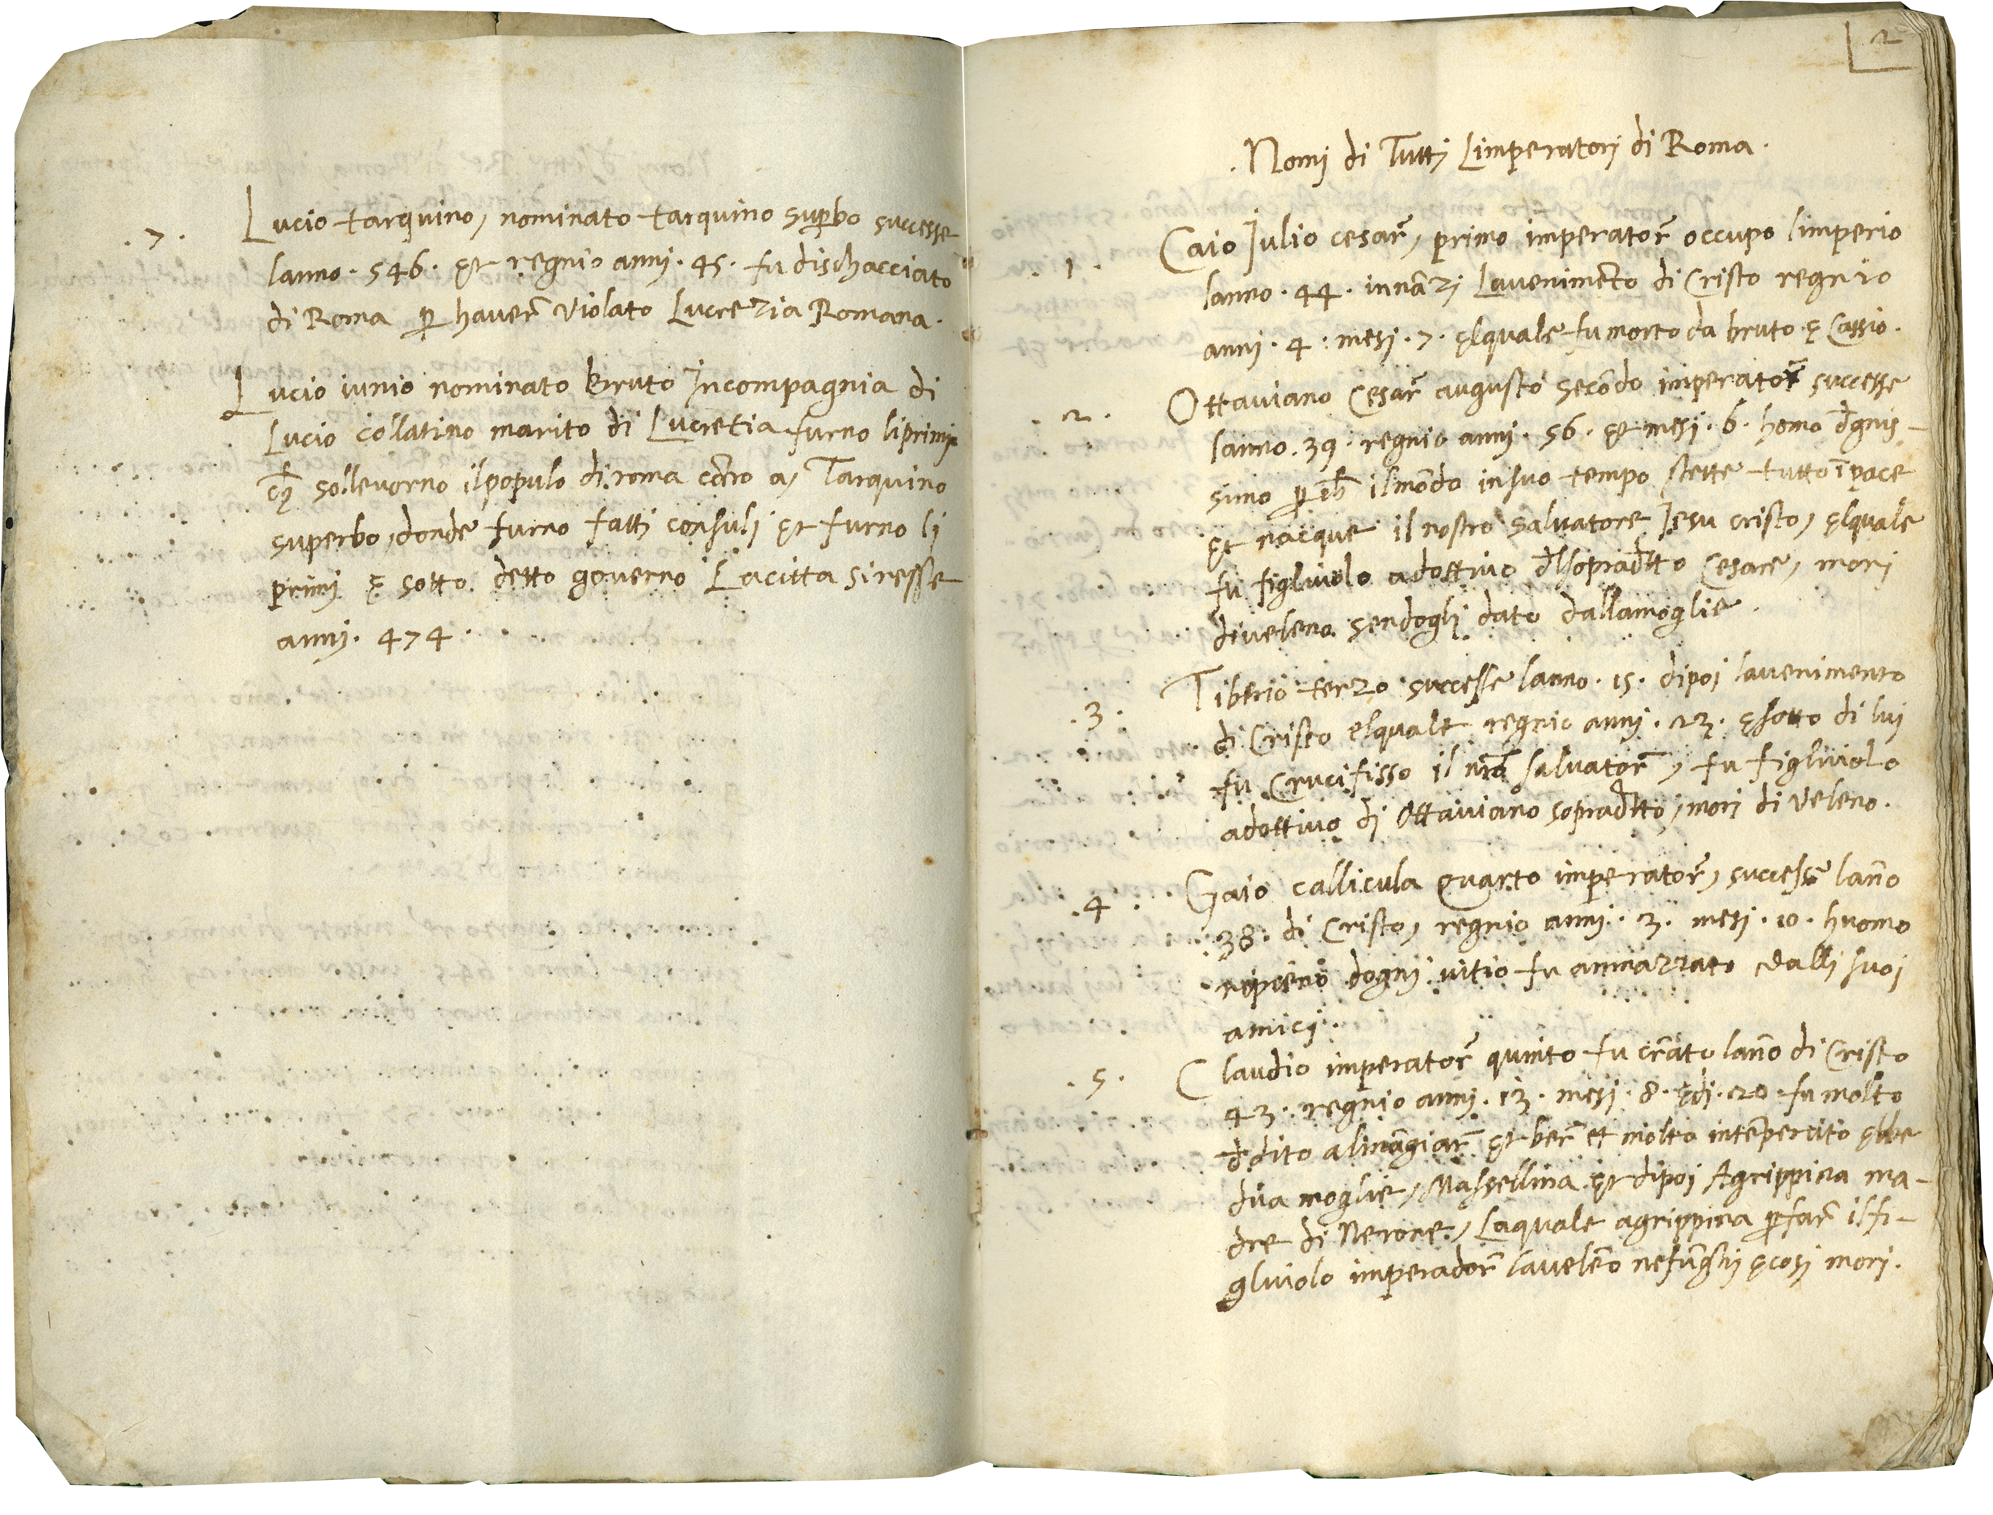 .7. Lucio tarquino, nominato tarquino sup̱bo successe
lanno. 546. et regnio anni. 45. fu dischacciato
di Roma ꝑ haver̃ violato Lucrezia Romana.
Lucio iunio nominato bruto Incompagnia di
Lucio collatino marito di Lucretia furno liprimj
sollevorno ilpopulo di roma cõtro a, Tarquino
superbo, donde furno fatti consuli et furno li
primj ę sotto detto governo Lacitta siresse
anni. 474.
2
. Nomi di Tuttj Limperatorj di Roma.
.1. Caio Iulio cesar̃, primo imperator̃ occupo limperio
lanno. 44. innãzi Lavenimẽto di Cristo regnio
anni. 4. mesi. 7. elquale fu morto da bruto ę Cassio.
.2. Ottaviano Cesar̃ augusto secõdo imperator̃ successe
lanno. 39. regnio anni. 56. et mesi. 6. homo d̃gnis-
simo ꝑ ch̃ ilmõdo insuo tempo stette tutto ĩ pace
et nacque il nostro salvatore Jesu cristo, elquale
fu figliuolo adottivo d̃lsoprad̃tto Cesare, mori
diveleno sendoglj dato dallamoglie.
.3. Tib̃rio terzo successe lanno. 15. dipoi lavenimento
di Cristo elquale regnio anni. 23. ę sotto di lui
fu Crucifisso il nrõ salvator̃, fu figliuolo
adottivo di Ottaviano soprad̃tto, mori di veleno.
.4. Gaio callicula quarto imperator̃, successe lañо
38. di Cristo, regnio anni. 3. mesi. 10. huomo
ripieno dognj vitio fu amazzato dalli suoi
amicj.
.5. Claudio imperator̃ quinto fu cr̃ato lañо di Cristo
43. regnio anni. 13. mesi. 8. ędi. 20. fu molto
d̃dito almãgiar̃ et ber̃ et molto intẽperato ębbe
dua moglie, Massellina et dipoi Agrippina ma-
dre di Nerone, Laquale agrippina ꝑ far̃ ilfi-
gliuolo imperador̃ lavelẽo nefũghj ę cosi mori.